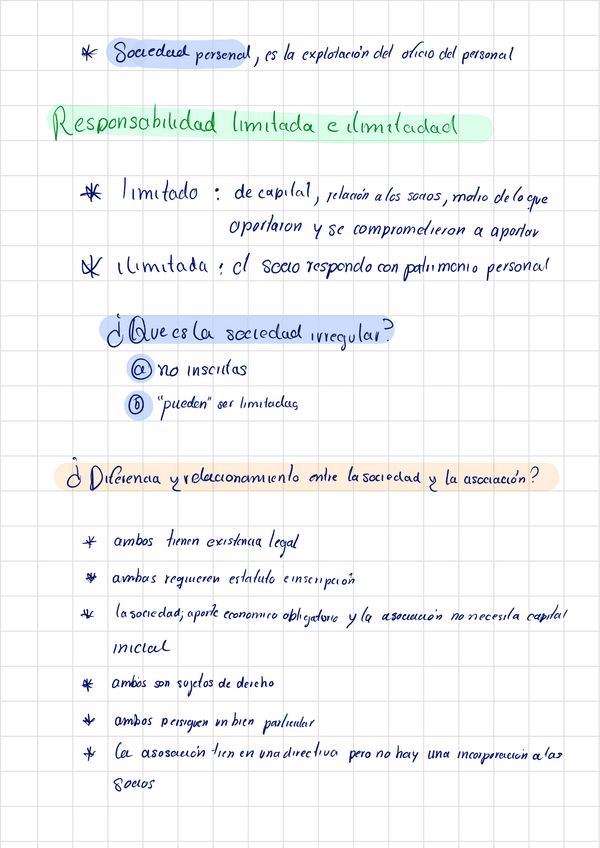 * Sociedad personal, es la explotación del oficio del personal
Responsabilidad limitada e ilimitadad
* limitado : de capital, relación a los socios, motio de lo que
aportaron y se comprometieron a aportar
* ilimitada : el socio respondo con patrimonio personal
¿Que es la sociedad irregular?
a no inscritas
b "pueden" ser limitadas
¿Diferencia y relacionamiento entre la sociedad y la asociación?
* ambos tienen existencia legal
* ambas requieren estatuto e inscripción
* la sociedad; aporte economico obligatorio y la asociación no necesita capital
inicial
* ambos son sujetos de derecho
* ambos persiguen un bien particular
* la asosación tien en una directiva pero no hay una incorporación a las
socios